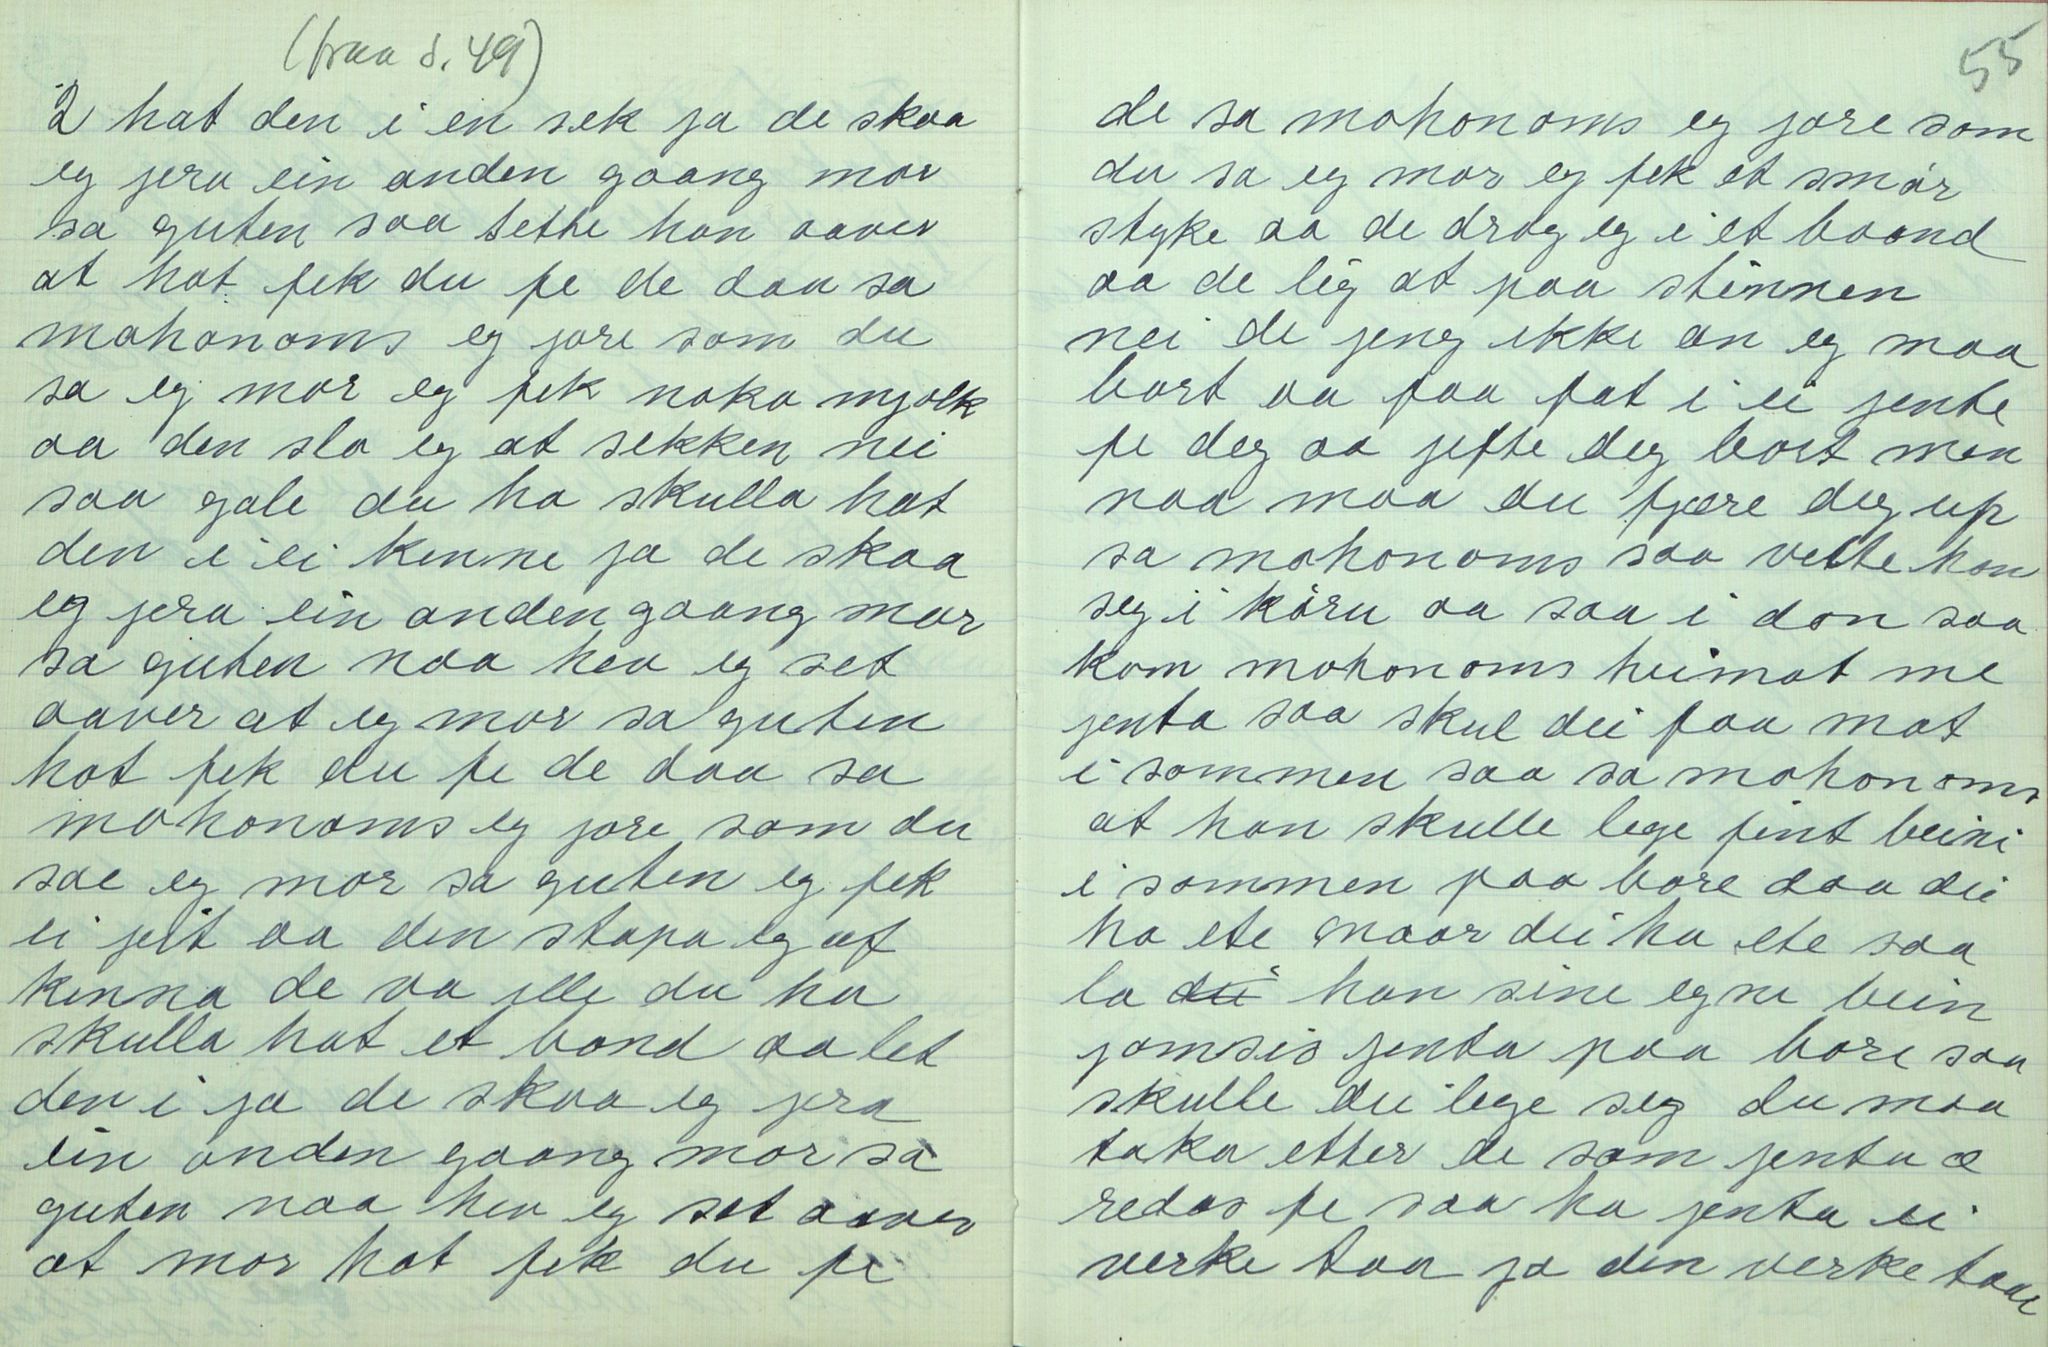 (fraa s. 49)
2 hat den i en sek ja de skaa
eg jera ein anden gaang mor
sa guten saa sette han aaver
at hot fek du fe de daa sa
mohonoms eg jore som du
sa eg mor eg fek noka mjølk
aa den slo eg at sekken nei
saa gale du ha skulla hat
den i ei kenne ja de skaa
eg jera ein anden gaang mor
sa guten naa hev eg set
aaver at eg mor sa guten
hot fek du fe de daa sa
mohonoms eg jore som du
sae eg mor sa guten eg fek
ei jeit aa den stapa eg af
kenna de va ille du ha
skulla hat et bond aa let
den i ja de skaa eg jera
ein anden gaang mor sa
guten naa hev eg set aaver
at mor hot fek du fe
55
de sa mohonoms eg jore som
du sa eg mor eg fek et smør
styke aa de drog eg i et baand
aa de lig at paa stinnen
nei de jeng ikke an eg maa
bort aa faa fat i ei jente
fe deg aa jefte deg bort men
naa maa du fjære deg up
sa mohonoms saa velte han
seg i køru aa saa i don saa
kom mohonoms heimat me
jenta saa skul dei faa mat
i sommen saa sa mohonoms
at han skulle lege fint beini
i sommen paa bore daa dei
ha ete naar dei ha ete saa
la han sine egne bein
jamsis jenta paa bore saa
skulle dei lege seg du maa
taka etter de som jenta æ
redas fe saa ha jenta ei
verke taa ja den verke taae